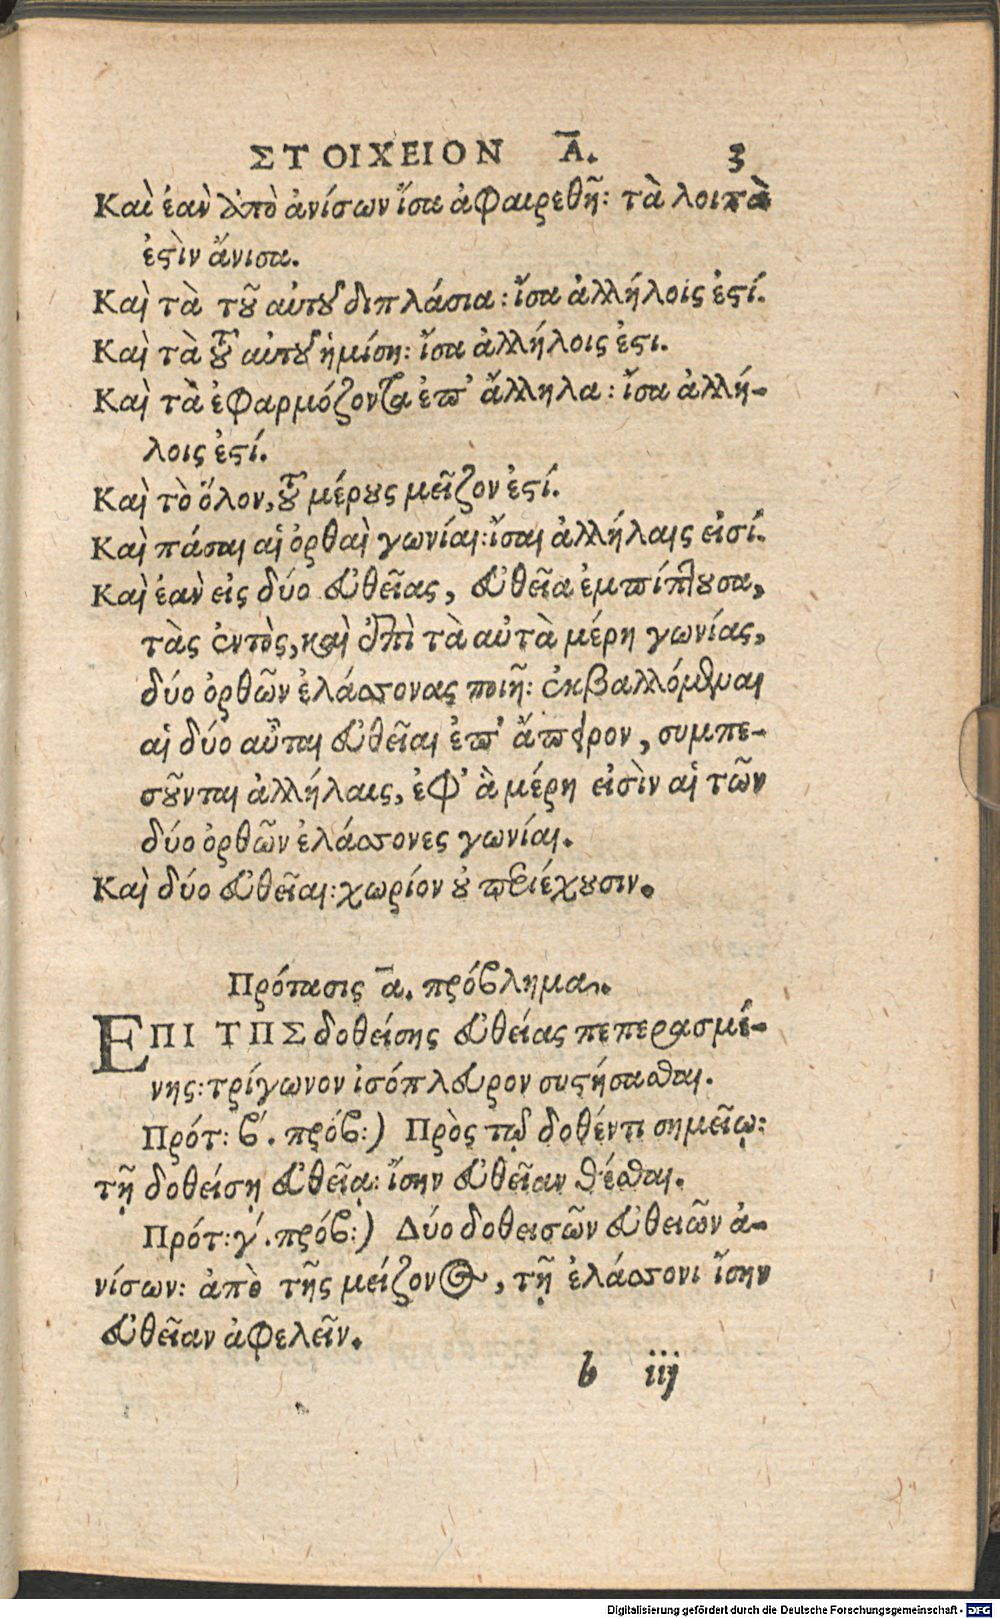 ΣΤΟΙΧΕΙΟΝ Α̅. 3
Καὶ ἐὰν ἀπὸ ἀνίσων ἴσα ἀφαιρεθῆ: τὰ λοιπὰ
ἐςὶν ἄνισα.
Καὶ τὰ τοῦ αὐτοῦ διπλάσια: ἴσα ἀλλήλοις ἐςί.
Καὶ τὰ τοῦ αὐτοῦ ἡμίση: ἴσα ἀλλήλοις ἐςι.
Καὶ τὰ ἐφαρμόζοντα ἐπ' ἄλληλα: ἴσα ἀλλή-
λοις ἐςί.
Καὶ τὸ ὅλον, τοῦ μέρους μεῖζον ἐςί.
Καὶ πάσαι αἱ ὀρθαὶ γωνίαι: ἴσαι ἀλλήλαις εἰσί.
Καὶ ἐὰν εἰς δύο εὐθεῖας, εὐθεῖα ἐμπίπτουσα,
τὰς ἐντὸς, καὶ ἐπὶ τὰ αὐτὰ μέρη γωνίας,
δύο ὀρθῶν ἐλάσσονας ποιῆ: ἐκβαλλόμεναι
αἱ δύο αὗται εὐθεῖαι ἐπ' ἄπειρον, συμπε-
σοῦνται ἀλλήλαις, ἐφ' ἃ μέρη εἰσὶν αἱ τῶν
δύο ὀρθῶν ἐλάσσονες γωνίαι.
Καὶ δύο εὐθεῖαι: χωρίον οὐ περιέχουσιν.
Πρότασις α̅. πρόβλημα.
ΕΠΙ ΤΠΣ δοθείσης εὐθείας πεπερασμέ-
νης: τρίγωνον ἰσόπλευρον συςήσασθαι.
Πρότ: β'. πρόβ:) Πρὸς τῷ δοθέντι σημεῖῳ:
τῇ δοθείσῃ εὐθεῖᾳ: ἴσην εὐθεῖαν θέσθαι.
Πρότ: γ'. πρόβ:) Δύο δοθεισῶν εὐθειῶν ἀ-
νίσων: ἀπὸ τῆς μείζονος, τῇ ἐλάσσονι ἴσην
εὐθεῖαν ἀφελεῖν.
b iij
Digitalisierung gefördert durch die Deutsche Forschungsgemeinschaft - DFG